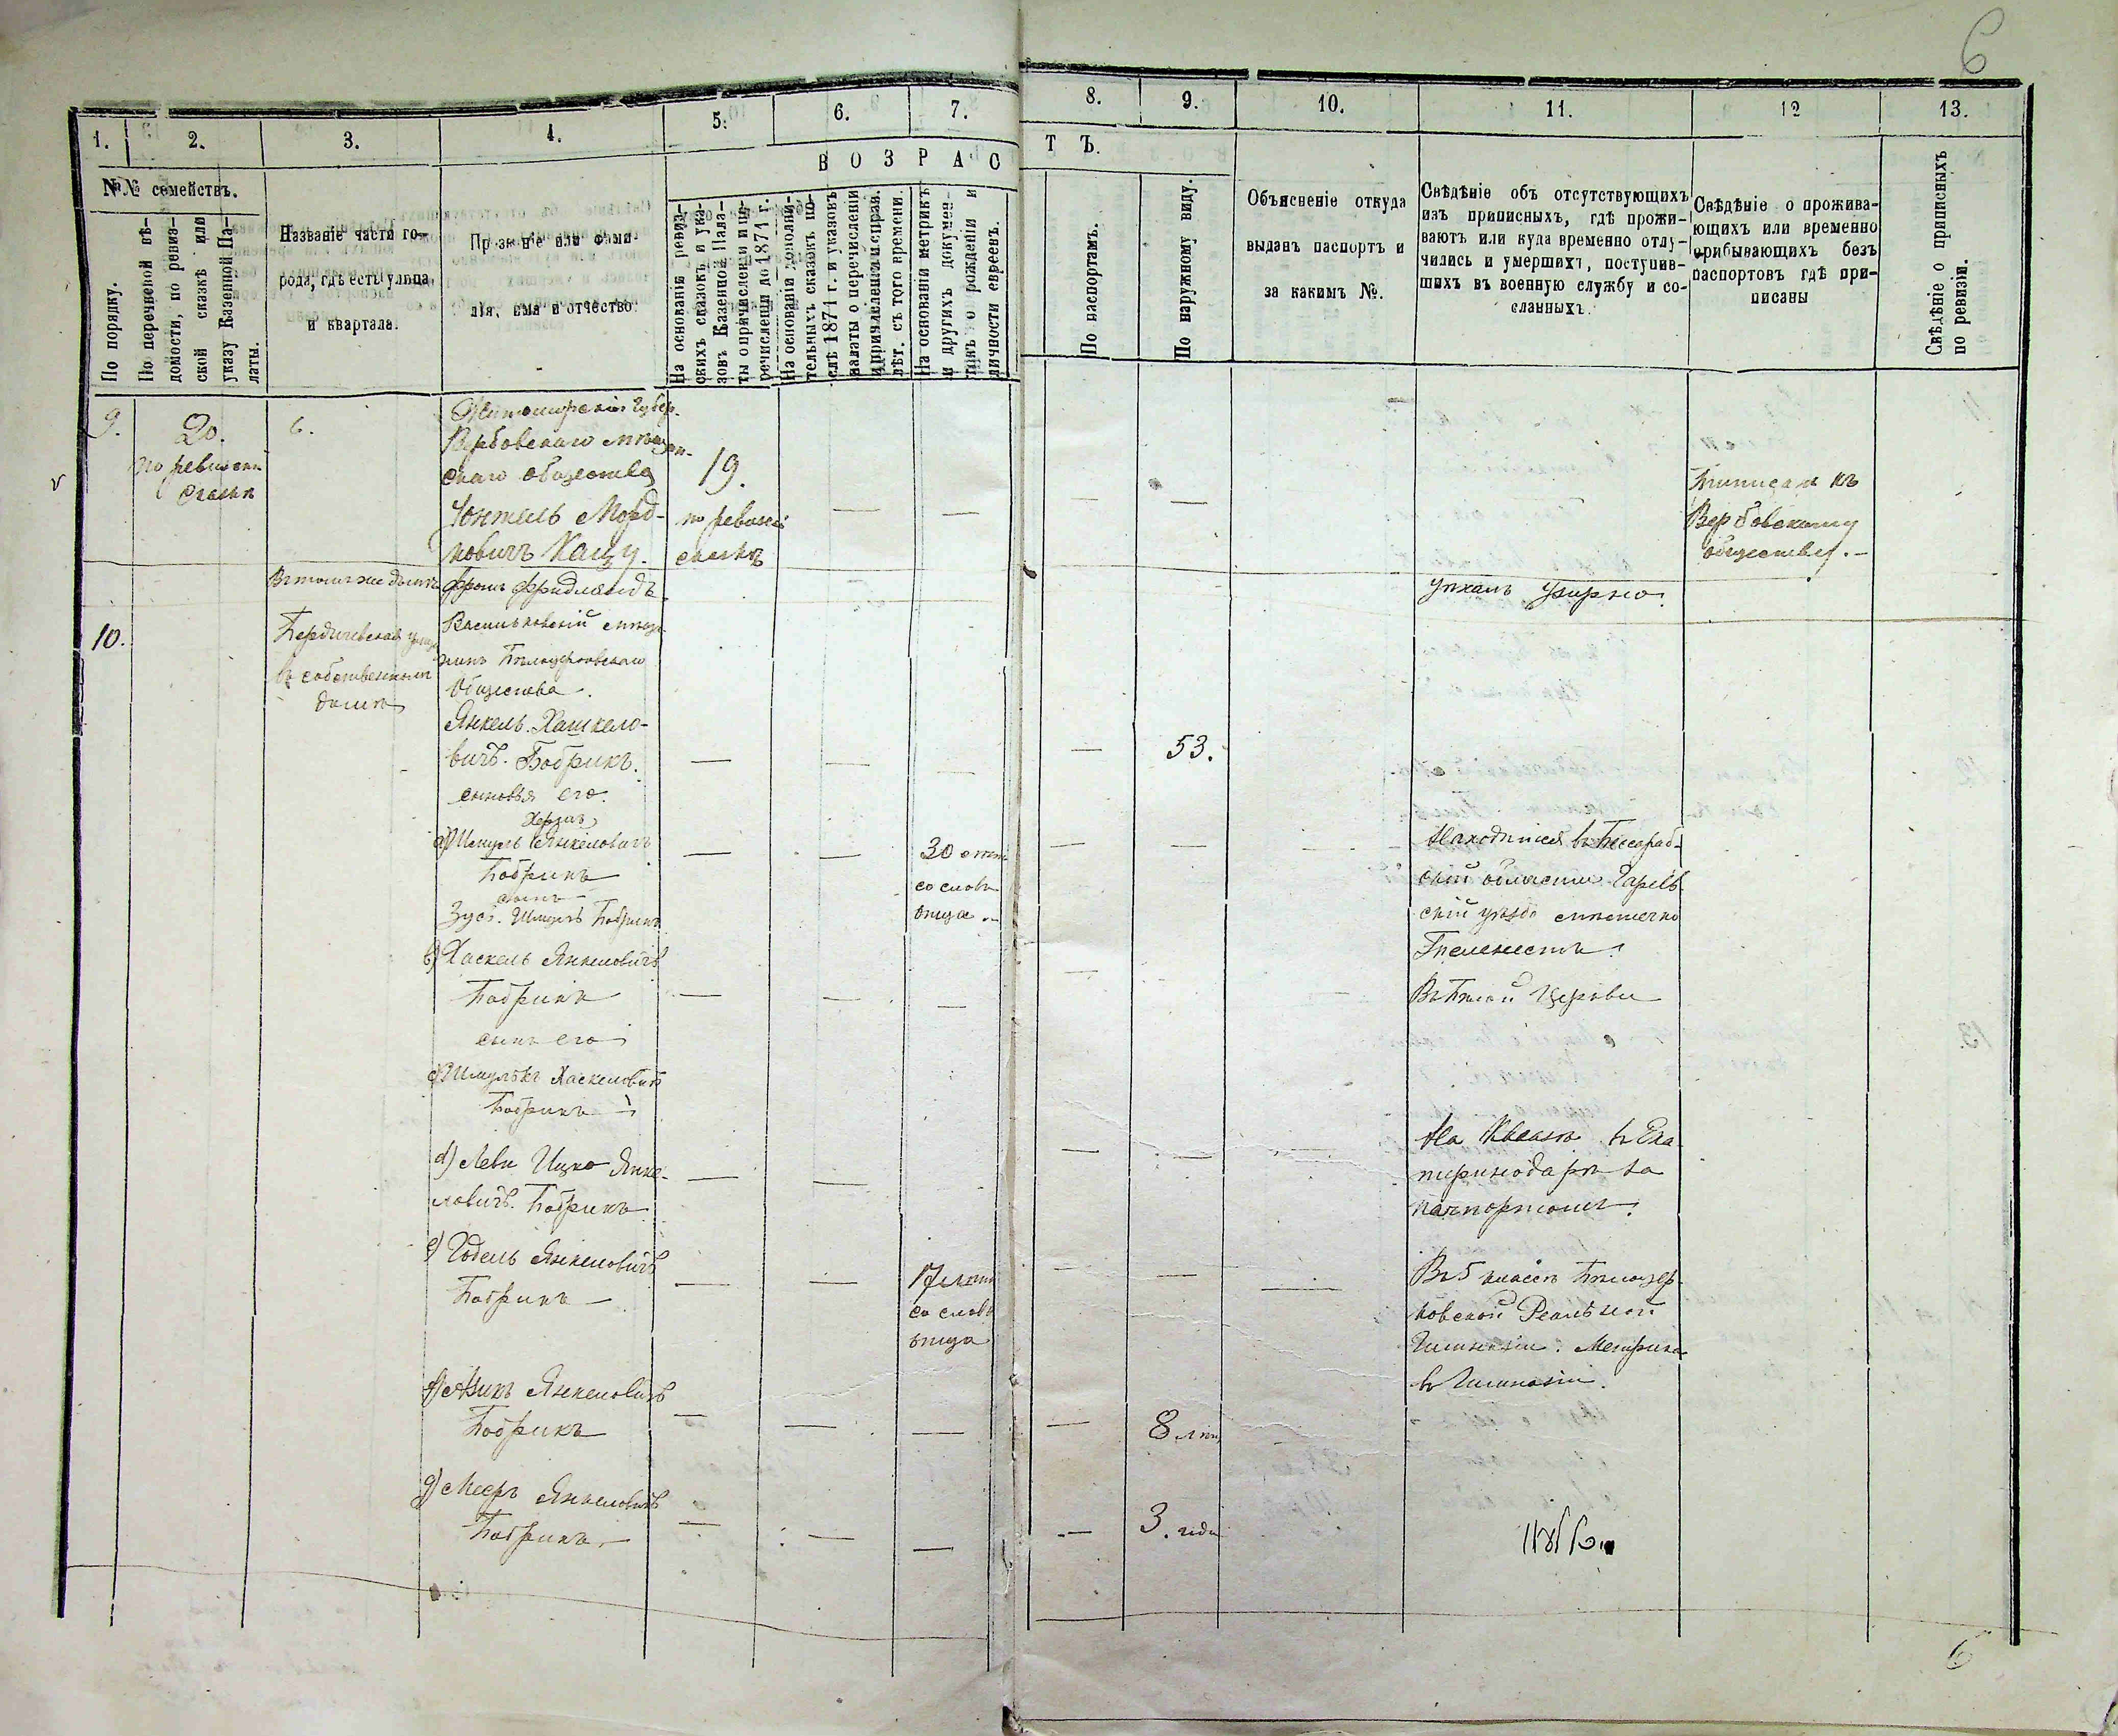 6
1. 2. 3. 4. 5. 6. 7. 8. 9. 10. 11. 12 13.
В О З Р А С Т Ъ.
№№ семействъ.
По порядку.
По перечневой вѣ-
домости, по ревиз-
ской сказкѣ или
указу Казенной Па-
латы.
Названіе части го-
рода, гдѣ есть улица
и квартала.
Прозваніе или фами-
лія, имя и отчество.
На основаніи ревиз-
скихъ сказокъ и ука-
зовъ Казенной Пала-
ты о причисленіи и пе-
речисленіи до 1871 г.
На основаніи дополни-
тельныхъ сказокъ по-
слѣ 1871 г. и указовъ
палаты о перечисленіи
и причисленіи и справ.
лѣт. съ того времени.
На основаніи метрикъ
и другихъ докумен-
товъ о рожденіи и
личности евреевъ.
По паспортамъ.
По наружному виду.
Объясненіе откуда
выданъ паспортъ и
за какимъ №.
Свѣдѣніе объ отсутствующихъ
изъ приписныхъ, гдѣ прожи-
ваютъ или куда временно отлу-
чились и умершихъ, поступив-
шихъ въ военную службу и со-
сланныхъ.
Свѣдѣніе о прожива-
ющихъ или временно
прибывающихъ безъ
паспортовъ гдѣ при-
писаны
Свѣдѣніе о приписныхъ
по ревизіи.
9.
20.
по ревизской
сказкѣ
6.
Житомирской Губер.
Вербовскаго мѣщан-
скаго общества
Юнтель Морд-
ковичъ Кацъ.
19.
по ревизской
сказкѣ
Приписан къ
Вербовскому
обществу.
Въ томъ же домѣ
Фроимъ Фридландъ
10.
Бердичевская улица
въ собственномъ
домѣ
Васильковскій мѣща-
нинъ Бѣлоцерковскаго
Общества.
Янкель Хашкело-
вичъ Бобрикъ.
53.
сыновья его.
Херзлъ
a) Шмуль Янкеловичъ
Бобрикъ
сынъ
Зусь Шмулевъ Бобрикъ
30 лѣтъ
со словъ
отца
Находится въ Бессараб-
ской области
мѣстечко
b) Хаскель Янкеловичъ
Бобрикъ
Въ Бѣлой Церкви
сынъ его
c) Шмулькъ Хаскеловичъ
Бобрикъ
d) Левъ Ицко Янке-
ловичъ Бобрикъ
На Кавказѣ въ Ека-
теринодарѣ за
паспортомъ.
e) Годель Янкеловичъ
Бобрикъ
17 лѣтъ
со словъ
отца
Въ 5 классѣ Бѣлоцер-
ковской Реальной
Гимназіи. Метрика
въ Гимназіи.
f) Азикъ Янкеловичъ
Бобрикъ
8 лѣтъ
g) Мееръ Янкеловичъ
Бобрикъ
3. года
6